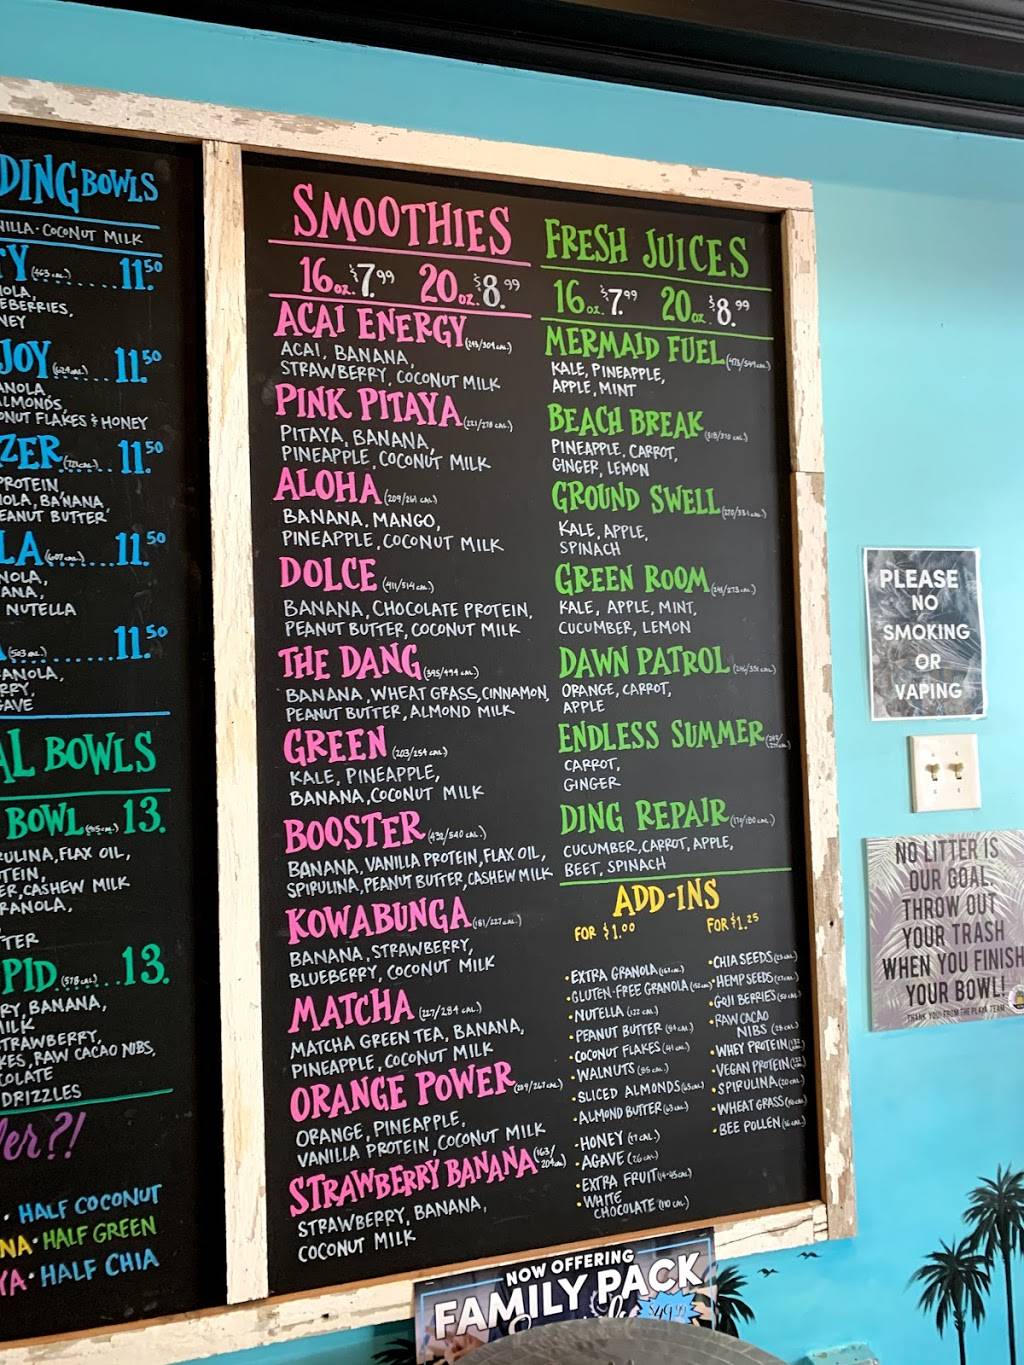 DING BOWLS
NILLA · COCONUT MILK
TY (463 CAL.) 11.50
OLA,
EBERRIES,
NEY
JOY (624 CAL.) 11.50
ANOLA,
ALMONDS,
ONUT FLAKES & HONEY
ZER 11.50
PROTEIN
OLA, BANANA,
EANUT BUTTER
LA (607 CAL.) 11.50
NOLA,
ANA,
NUTELLA
(503 CAL.) 11.50
ANOLA,
RRY,
GAVE
AL BOWLS
BOWL 13.
RULINA, FLAX OIL,
TEIN,
ER, CASHEW MILK
RANOLA,
TTER
PID (578 CAL.) 13.
RY, BANANA,
MILK
STRAWBERRY,
KES, RAW CACAO NIBS,
COLATE
DRIZZLES
er?!
· HALF COCONUT
NA · HALF GREEN
YA · HALF CHIA
SMOOTHIES
16 OZ. $7.99 20 OZ. $8.99
ACAI ENERGY
ACAI, BANANA,
STRAWBERRY, COCONUT MILK
PINK PITAYA (221/278 CAL.)
PITAYA, BANANA,
PINEAPPLE, COCONUT MILK
ALOHA (209/261 CAL.)
BANANA, MANGO,
PINEAPPLE, COCONUT MILK
DOLCE (411/514 CAL.)
BANANA, CHOCOLATE PROTEIN,
PEANUT BUTTER, COCONUT MILK
THE DANG (395/494 CAL.)
BANANA, WHEAT GRASS, CINNAMON,
PEANUT BUTTER, ALMOND MILK
GREEN (203/254 CAL.)
KALE, PINEAPPLE,
BANANA, COCONUT MILK
BOOSTER (432/540 CAL.)
BANANA, VANILLA PROTEIN, FLAX OIL,
SPIRULINA, PEANUT BUTTER, CASHEW MILK
KOWABUNGA (181/227 CAL.)
BANANA, STRAWBERRY,
BLUEBERRY, COCONUT MILK
MATCHA (227/284 CAL.)
MATCHA GREEN TEA, BANANA,
PINEAPPLE, COCONUT MILK
ORANGE POWER
ORANGE, PINEAPPLE,
VANILLA PROTEIN, COCONUT MILK
STRAWBERRY BANANA (163/204 CAL.)
STRAWBERRY, BANANA,
COCONUT MILK
FRESH JUICES
16 OZ. $7.99 20 OZ. $8.99
MERMAID FUEL
KALE, PINEAPPLE,
APPLE, MINT
BEACH BREAK
PINEAPPLE, CARROT,
GINGER, LEMON
GROUND SWELL
KALE, APPLE,
SPINACH
GREEN ROOM
KALE, APPLE, MINT,
CUCUMBER, LEMON
DAWN PATROL
ORANGE, CARROT,
APPLE
ENDLESS SUMMER
CARROT,
GINGER
DING REPAIR
CUCUMBER, CARROT, APPLE,
BEET, SPINACH
ADD-INS
FOR $1.00
· EXTRA GRANOLA
· GLUTEN-FREE GRANOLA
· NUTELLA
· PEANUT BUTTER (94 CAL.)
· COCONUT FLAKES (41 CAL.)
· WALNUTS
· SLICED ALMONDS
· ALMOND BUTTER
· HONEY
· AGAVE
· EXTRA FRUIT
· WHITE
CHOCOLATE (110 CAL.)
FOR $1.25
· CHIA SEEDS
· HEMP SEEDS
· GOJI BERRIES
· RAW CACAO
NIBS
· WHEY PROTEIN
· VEGAN PROTEIN
· SPIRULINA
· WHEAT GRASS
· BEE POLLEN
PLEASE
NO
SMOKING
OR
VAPING
NO LITTER IS
OUR GOAL.
THROW OUT
YOUR TRASH
WHEN YOU FINISH
YOUR BOWL!
THANK YOU! FROM THE PLAYA TEAM
NOW OFFERING
FAMILY PACK
$49.99